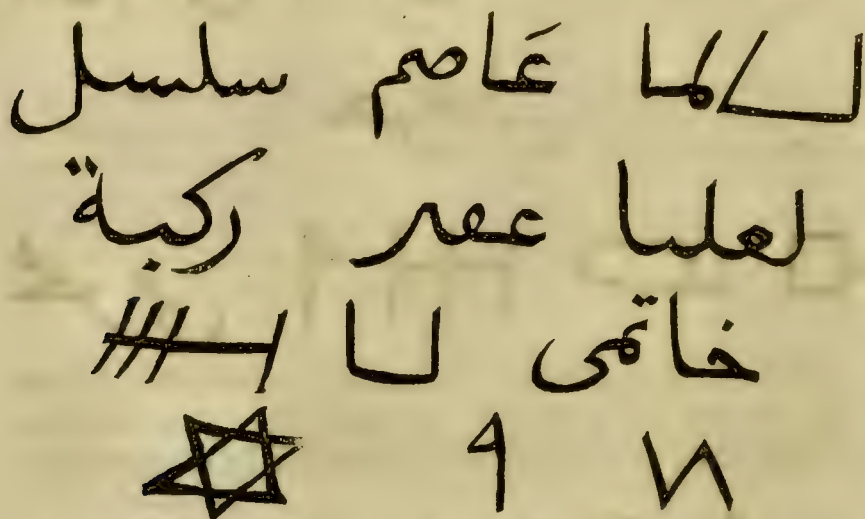 لما عَاصم سلسل
لعلىا عفىر ركبة
خاتمى لا
٩